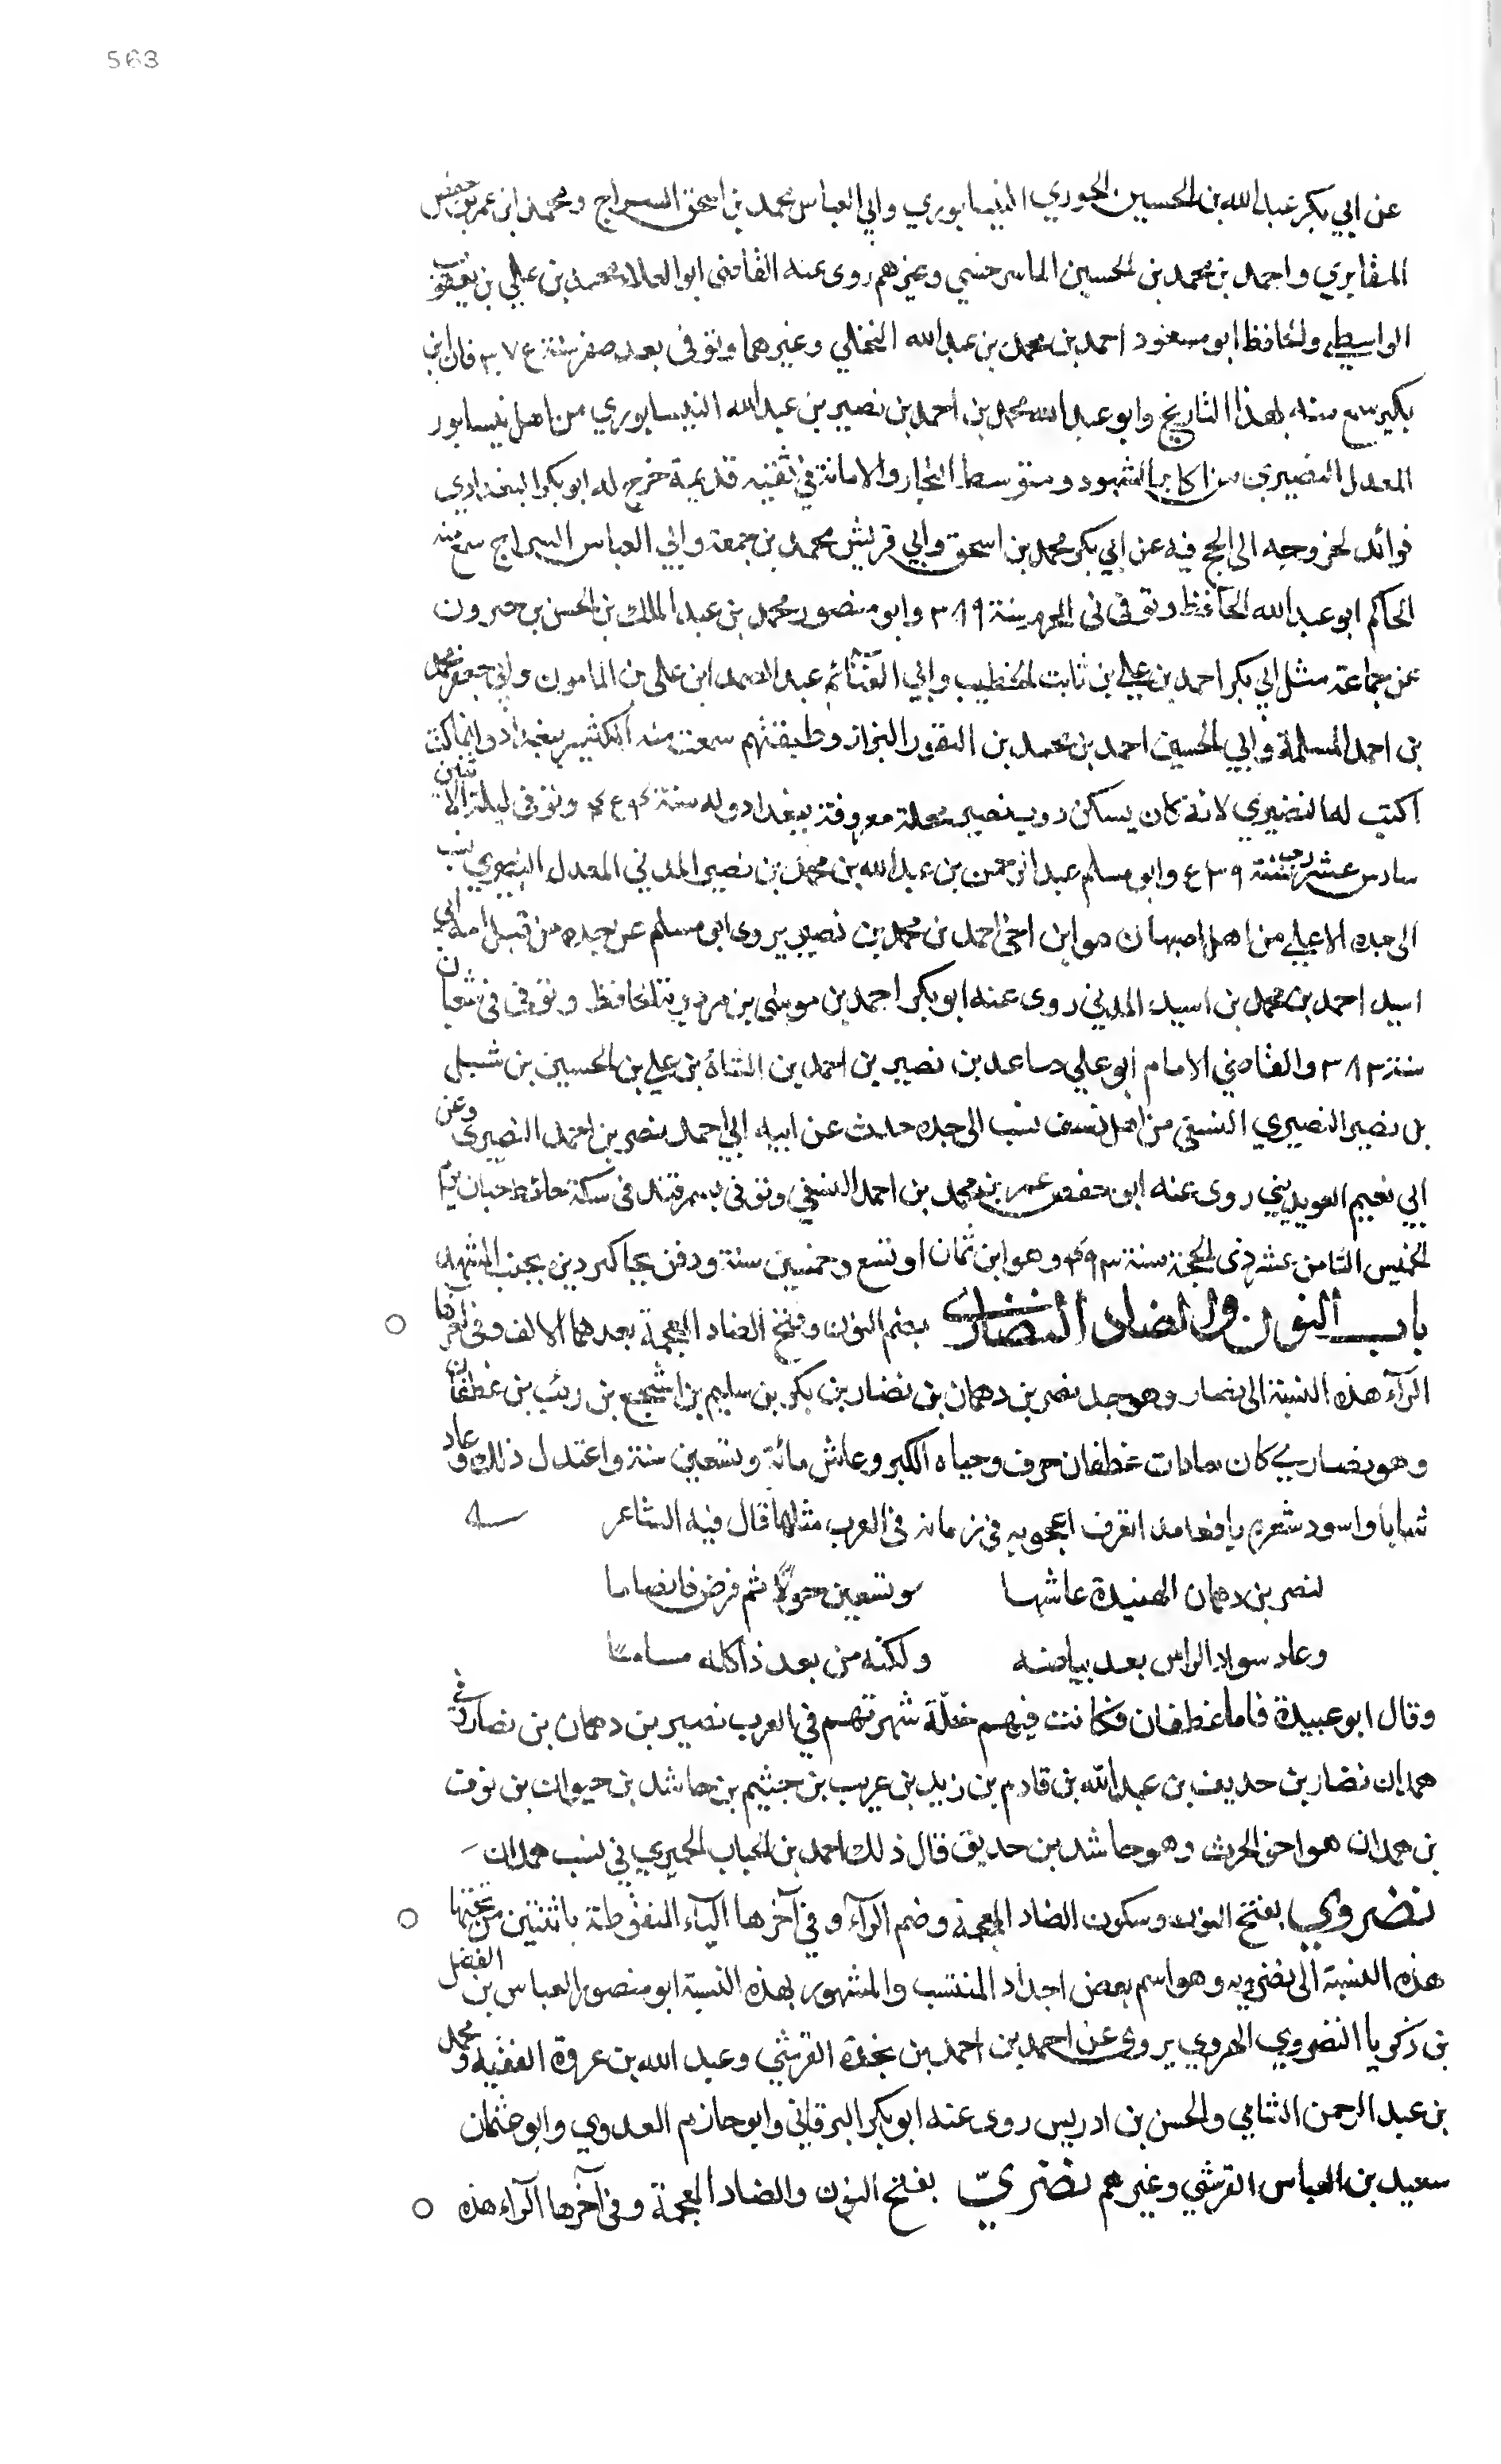 563
عن ابي بكر عبد الله بن الحسين الجوري النيسابوري وابي العباس محمد بن اسحق السراج ومحمد ابن عمر بن حفص
المقابري واحمد بن محمد بن الحسين الماسرجسي وغيرهم روى عنه القاضى ابو العلاء محمد بن علي بن يعقوب
الواسطي والحافظ ابو مسعود احمد بن محمد بن عبد الله البجلي وغيرهما وتوفى بعد صفر سنة ٣٧٤ فان ابن
بكير سمع منه بهذا التاريخ وابو عبد الله محمد بن احمد بن نصير بن عبد الله النيسابوري من اهل نيسابور
المعدل النصيرى من اكابر الشهود ومتوسط التجار والامانة في قديمة خرج له ابو بكر البغدادي
فوائد لخروجه الى الحج فيه عن ابي بكر محمد بن اسحق وابي قريش محمد بن جمعة وابي العباس السراج سمع منه
الحاكم ابو عبد الله الحافظ وتوفى فى المحرم سنة ٣٨٩ وابو منصور محمد بن عبد الملك بن الحسن بن خيرون
عن جماعة مثل ابي بكر احمد بن علي بن ثابت الخطيب وابي الغنائم عبد الصمد ابن على بن المامون وابي جعفر محمد
بن احمد المسلمة وابي الحسين احمد بن محمد بن النقور البزاز وطبقتهم سمعت منه الكثير ببغداد وانما كنت
اكتب له النصيري لانه كان يسكن درب نصير محلة معروفة ببغداد ولد سنة وتوفى ليلة الاثنين
سادس عشر رجب سنة وابو مسلم عبد الرحمن بن عبد الله بن محمد بن نصير المدني المعدل النصيري نسب
الى جده الاعلى من اهل اصبهان هو ابن اخى احمد بن محمد بن نصير يروى ابو مسلم عن جده من قبل امه ابي
اسيد احمد بن محمد بن اسيد المديني روى عنه ابو بكر احمد بن موسى بن مردويه الحافظ وتوفى فى شعبان
سنة ٣٨٣ والقاضي الامام ابو علي صاعد بن نصير بن احمد بن الشاه بن علي بن الحسين بن شبل
بل نصير النصيري النسفى من اهل نسف نسب الى جده حدث عن ابيه ابي احمد نصر بن احمد النصيرى وعن
ابي نعيم العويديني روى عنه ابو حفص عمر بن محمد بن احمد النسفي وتوفى بسمرقند فى سكة حائط حيان يوم
الخميس الثامن عشر ذى الحجة سنة وهو ابن ثمان او تسع وخمسين سنة ودفن بجاكرديزه بجنب المشهد
باب النون والضاد النضارى بضم النون وفتح الضاد المعجمة بعدهما الالف وفى آخرها
الرآء هذه النسبة الى نضار وهو جد نصر بن دهمان بن نضار بن بكر بن سليم بن اشجع بن ريث بن غطفان
وهو نضاري كان سادات غطفان خرف وحياه الكبر وعاش مائة وتسعين سنة واعتدل ذلك وعاد
شابا واسود شعره يافعا اعجوبه في زمانه في العرب مثلها قال فيه الشاعر
لنصر بن دهمان الهنيدة عاشها وتسعين حولاً ثم
وعاد سواد الراس بعد بياضه ولكنه من بعد ذا كله
وقال ابو عبيدة فاما غطفان فكانت فيهم خلّة شهرتهم في العرب نصير بن دهمان بن نضار وفي
همدان نضار بن حديق بن عبد الله بن قادم بن زيد بن عريب بن جشيم بن حاشد بن حيوان بن نوف
بن همدان هو اخو الحرث وهو حاشد بن حديق قال ذلك احمد بن الحباب الحميري في نسب همدان
نضروي بفتح النون وسكون الضاد المعجمة وضم الرآء وفي آخرها اليآء المنقوطة باثنتين من تحتها
هذه النسبة الى نضرويه وهو اسم بعض اجداد المنتسب والمشهور بهذه النسبة ابو منصور العباس بن الفضل
بن زكريا النضروي الهروي يروى عن احمد بن احمد بن نجدة القرشي وعبد الله بن عروة الفقيه ومحمد
بن عبد الرحمن الشامي والحسن بن ادريس روى عنه ابو بكر البرقاني وابو حازم العدوي وابو عثمان
سعيد بن العباس القرشي وغيرهم نضريّ بفتح النون والضاد المعجمة وفي آخرها الرآء هذه